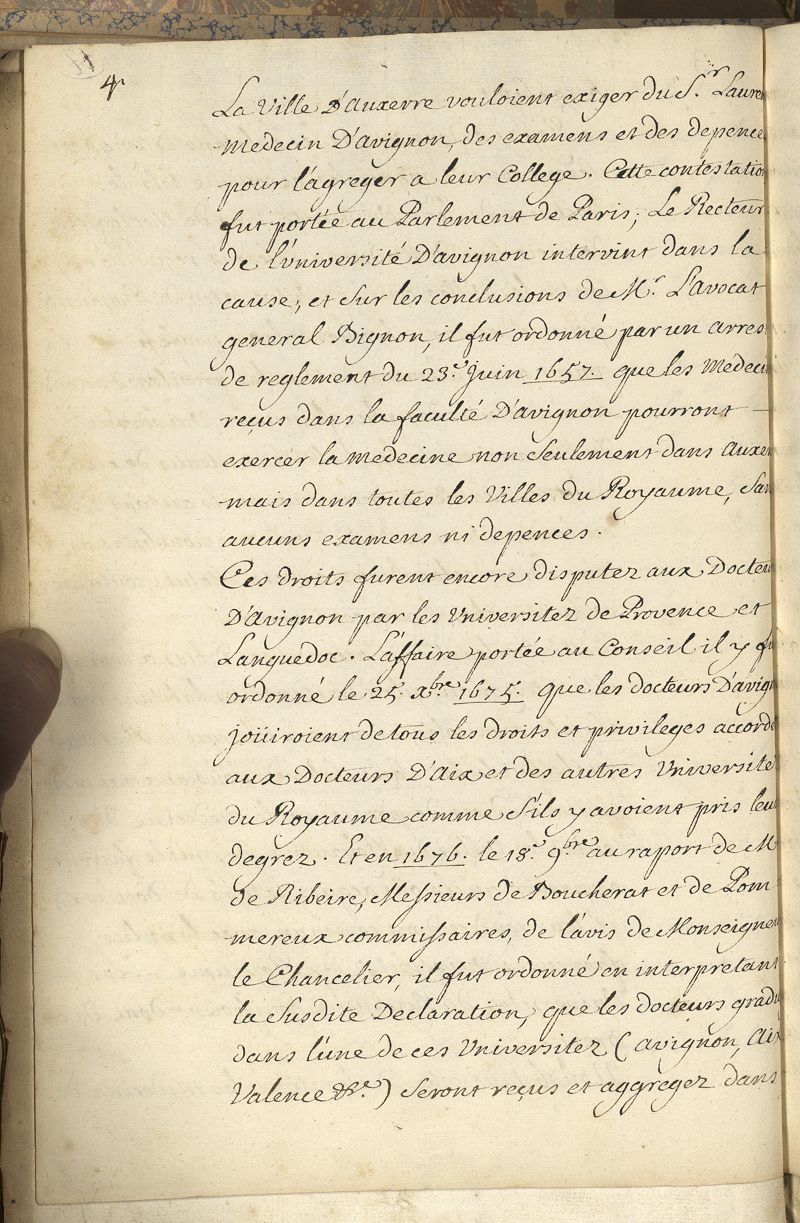 4
La Ville D'Auxerre vouloient exiger du S.r Lauren
Medecin D'avignon, des examens et des depence
pour l'agreger a leur College. Cette contestatio
fut portée au Parlement de Paris; Le Recteur
de l'université D'avignon intervint dans la
cause, et sur les conclusions de M.r L'avocat
general Bignon, il fut ordonné par un arrest
de reglement du 23.e Juin 1657. que les Medeci
reçus dans la faculté D'avignon pourront —
exercer la medecine non seulement dans Auxer
mais dans toutes les Villes du Royaume, San
aucuns examens ni depences.
Ces droits furent encore disputez aux Docteu
D'Avignon par les Universitez de Provence et
Languedoc. L'affaire portée au Conseil il y fu
ordonné le 25. Xbre 1675. que les docteurs D'avign
joüiroient de tous les droits et privileges accordé
aux Docteurs D'Aix et des autres Université
du Royaume comme s'ils y avoient pris leu
degrez. Et en 1676. le 18.e 9bre au raport de M
de Ribeire, Messieurs de Boucherat et de Pom
mereux commissaires, de l'avis de Monseigneu
le Chancelier, il fut ordonné en interpretant
la Susdite Declaration, que les docteurs gradu
dans l'une de ces Universitez (avignon, Aix
Valence &c.) seront reçus et aggregez dans